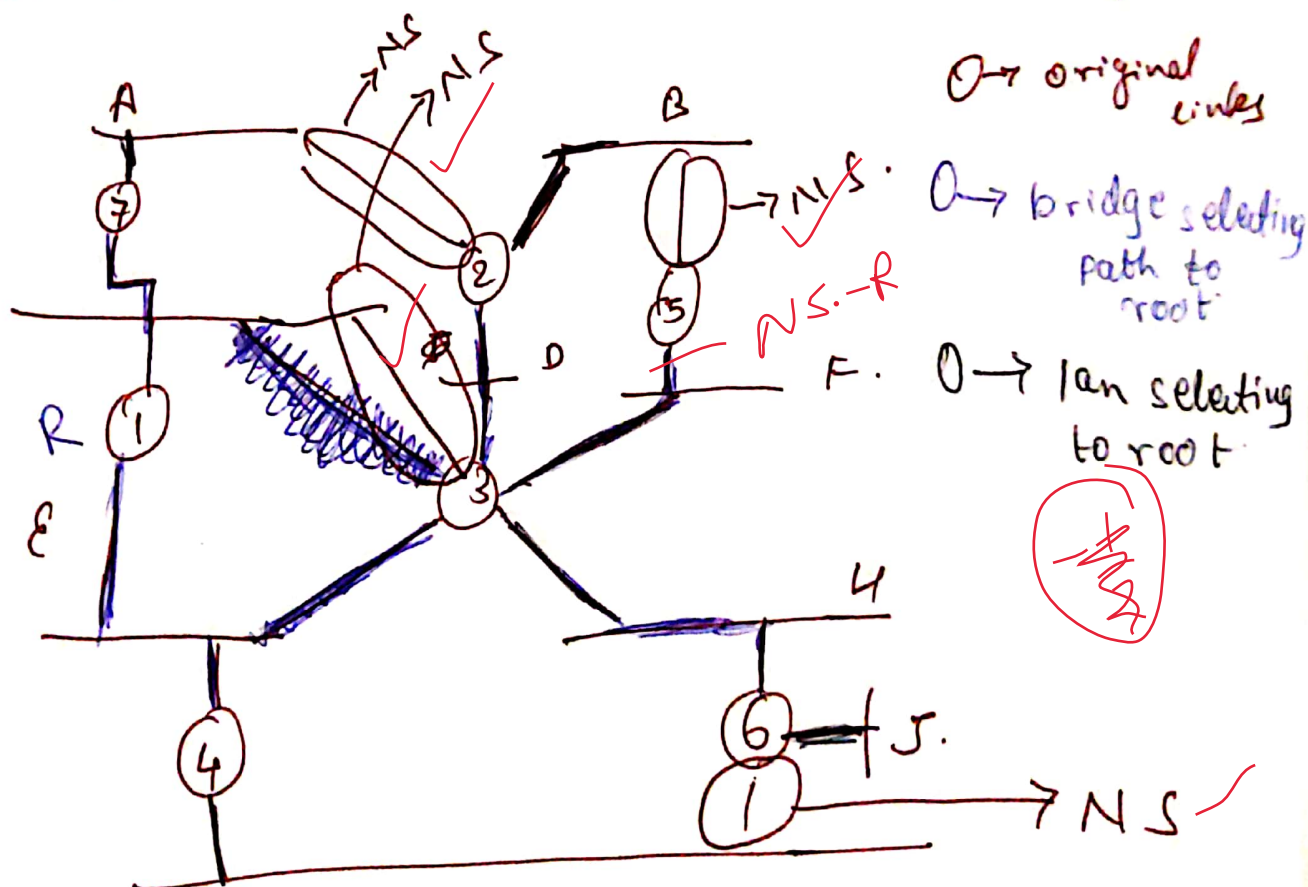 NS
NS
A
B
O→ original
links
7
→NS.
2
O→ bridge selecting
path to
root
5
NS.-R
D
F.
O→ lan selecting
to root
R
1
3
E
H
6
J.
4
1
→ NS